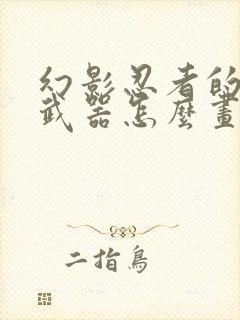 幻影忍者的
武器怎麼畫
二指鳥